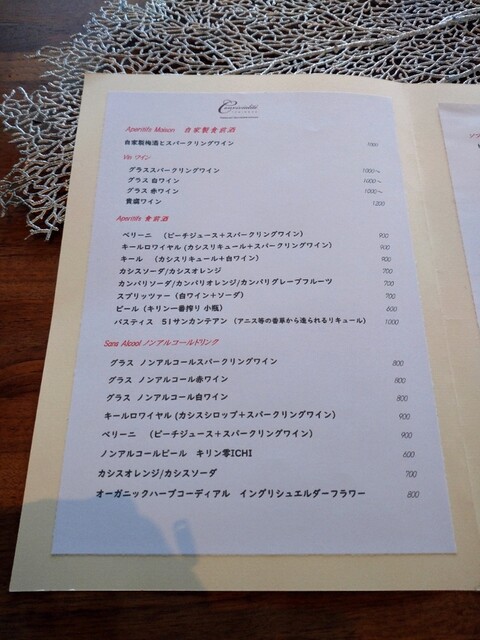 Convivialité
Aperitifs Maison 自家製食前酒
自家製梅酒とスパークリングワイン 1000
Vin ワイン
グラススパークリングワイン 1000～
グラス 白ワイン 1000～
グラス 赤ワイン 1000～
貴腐ワイン 1200
Aperitifs 食前酒
ベリーニ （ピーチジュース＋スパークリングワイン） 900
キールロワイヤル (カシスリキュール＋スパークリングワイン) 900
キール （カシスリキュール＋白ワイン） 900
カシスソーダ/カシスオレンジ 700
カンパリソーダ/カンパリオレンジ/カンパリグレープフルーツ 700
スプリッツァー（白ワイン＋ソーダ） 700
ビール (キリン一番搾り 小瓶) 600
パスティス 51サンカンテアン （アニス等の香草から造られるリキュール） 1000
Sans Alcool ノンアルコールドリンク
グラス ノンアルコールスパークリングワイン 800
グラス ノンアルコール赤ワイン 800
グラス ノンアルコール白ワイン 800
キールロワイヤル (カシスシロップ＋スパークリングワイン) 900
ベリーニ （ピーチジュース＋スパークリングワイン） 900
ノンアルコールビール キリン零ICHI 600
カシスオレンジ/カシスソーダ 700
オーガニックハーブコーディアル イングリシュエルダーフラワー 800